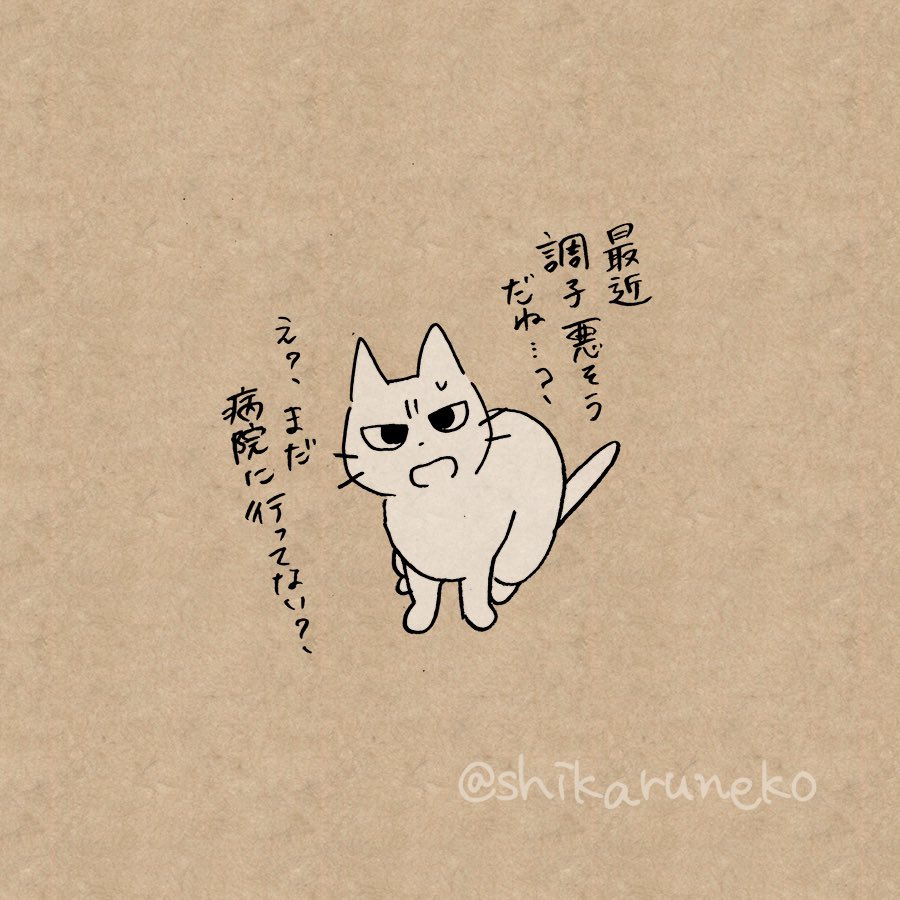 最近
調子悪そう
だね…?、
え?、まだ
病院に行ってない?、
@shikaruneko